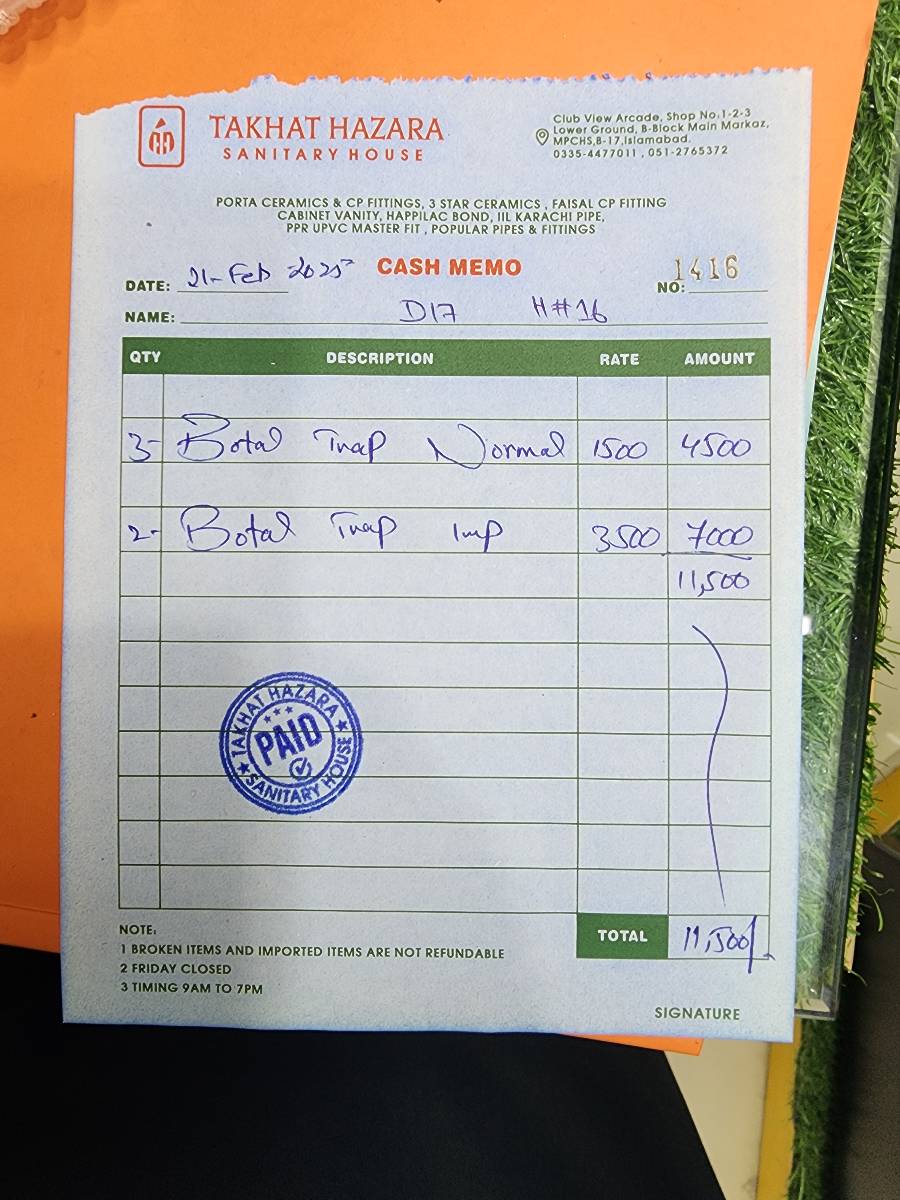 TAKHAT HAZARA
SANITARY HOUSE
Club View Arcade, Shop No.1-2-3
Lower Ground, B-Block Main Markaz,
MPCHS,B-17,Islamabad.
0335-4477011 , 051-2765372
PORTA CERAMICS & CP FITTINGS, 3 STAR CERAMICS , FAISAL CP FITTING
CABINET VANITY, HAPPILAC BOND, IIL KARACHI PIPE,
PPR UPVC MASTER FIT , POPULAR PIPES & FITTINGS
DATE: 21-Feb 2025 CASH MEMO NO: 1416
NAME: D17 H#16
QTY DESCRIPTION RATE AMOUNT
3- Botal Trap Normal 1500 4500
2- Botal Trap Imp 3500 7000
11,500
TAKHAT HAZARA
PAID
SANITARY HOUSE
TOTAL 11,500/-
NOTE:
1 BROKEN ITEMS AND IMPORTED ITEMS ARE NOT REFUNDABLE
2 FRIDAY CLOSED
3 TIMING 9AM TO 7PM
SIGNATURE